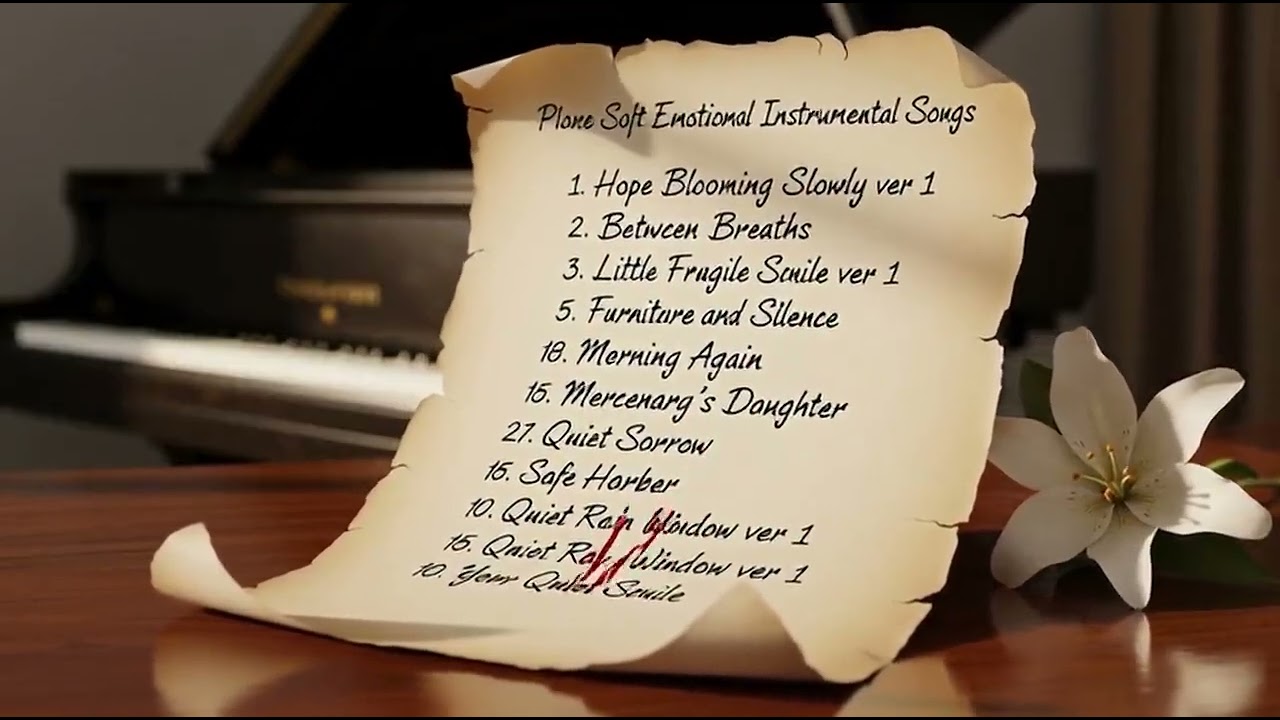 Plone Soft Emotional Instrumental Songs
1. Hope Blooming Slowly ver 1
2. Betwcen Breaths
3. Little Frugile Scuile ver 1
5. Furniture and Sllence
18. Merning Again
15. Mercenarg's Daughter
27. Quiet Sorrow
15. Safe Horber
10. Quiet Rain Window ver 1
15. Qniet Window ver 1
10. Your Scuile